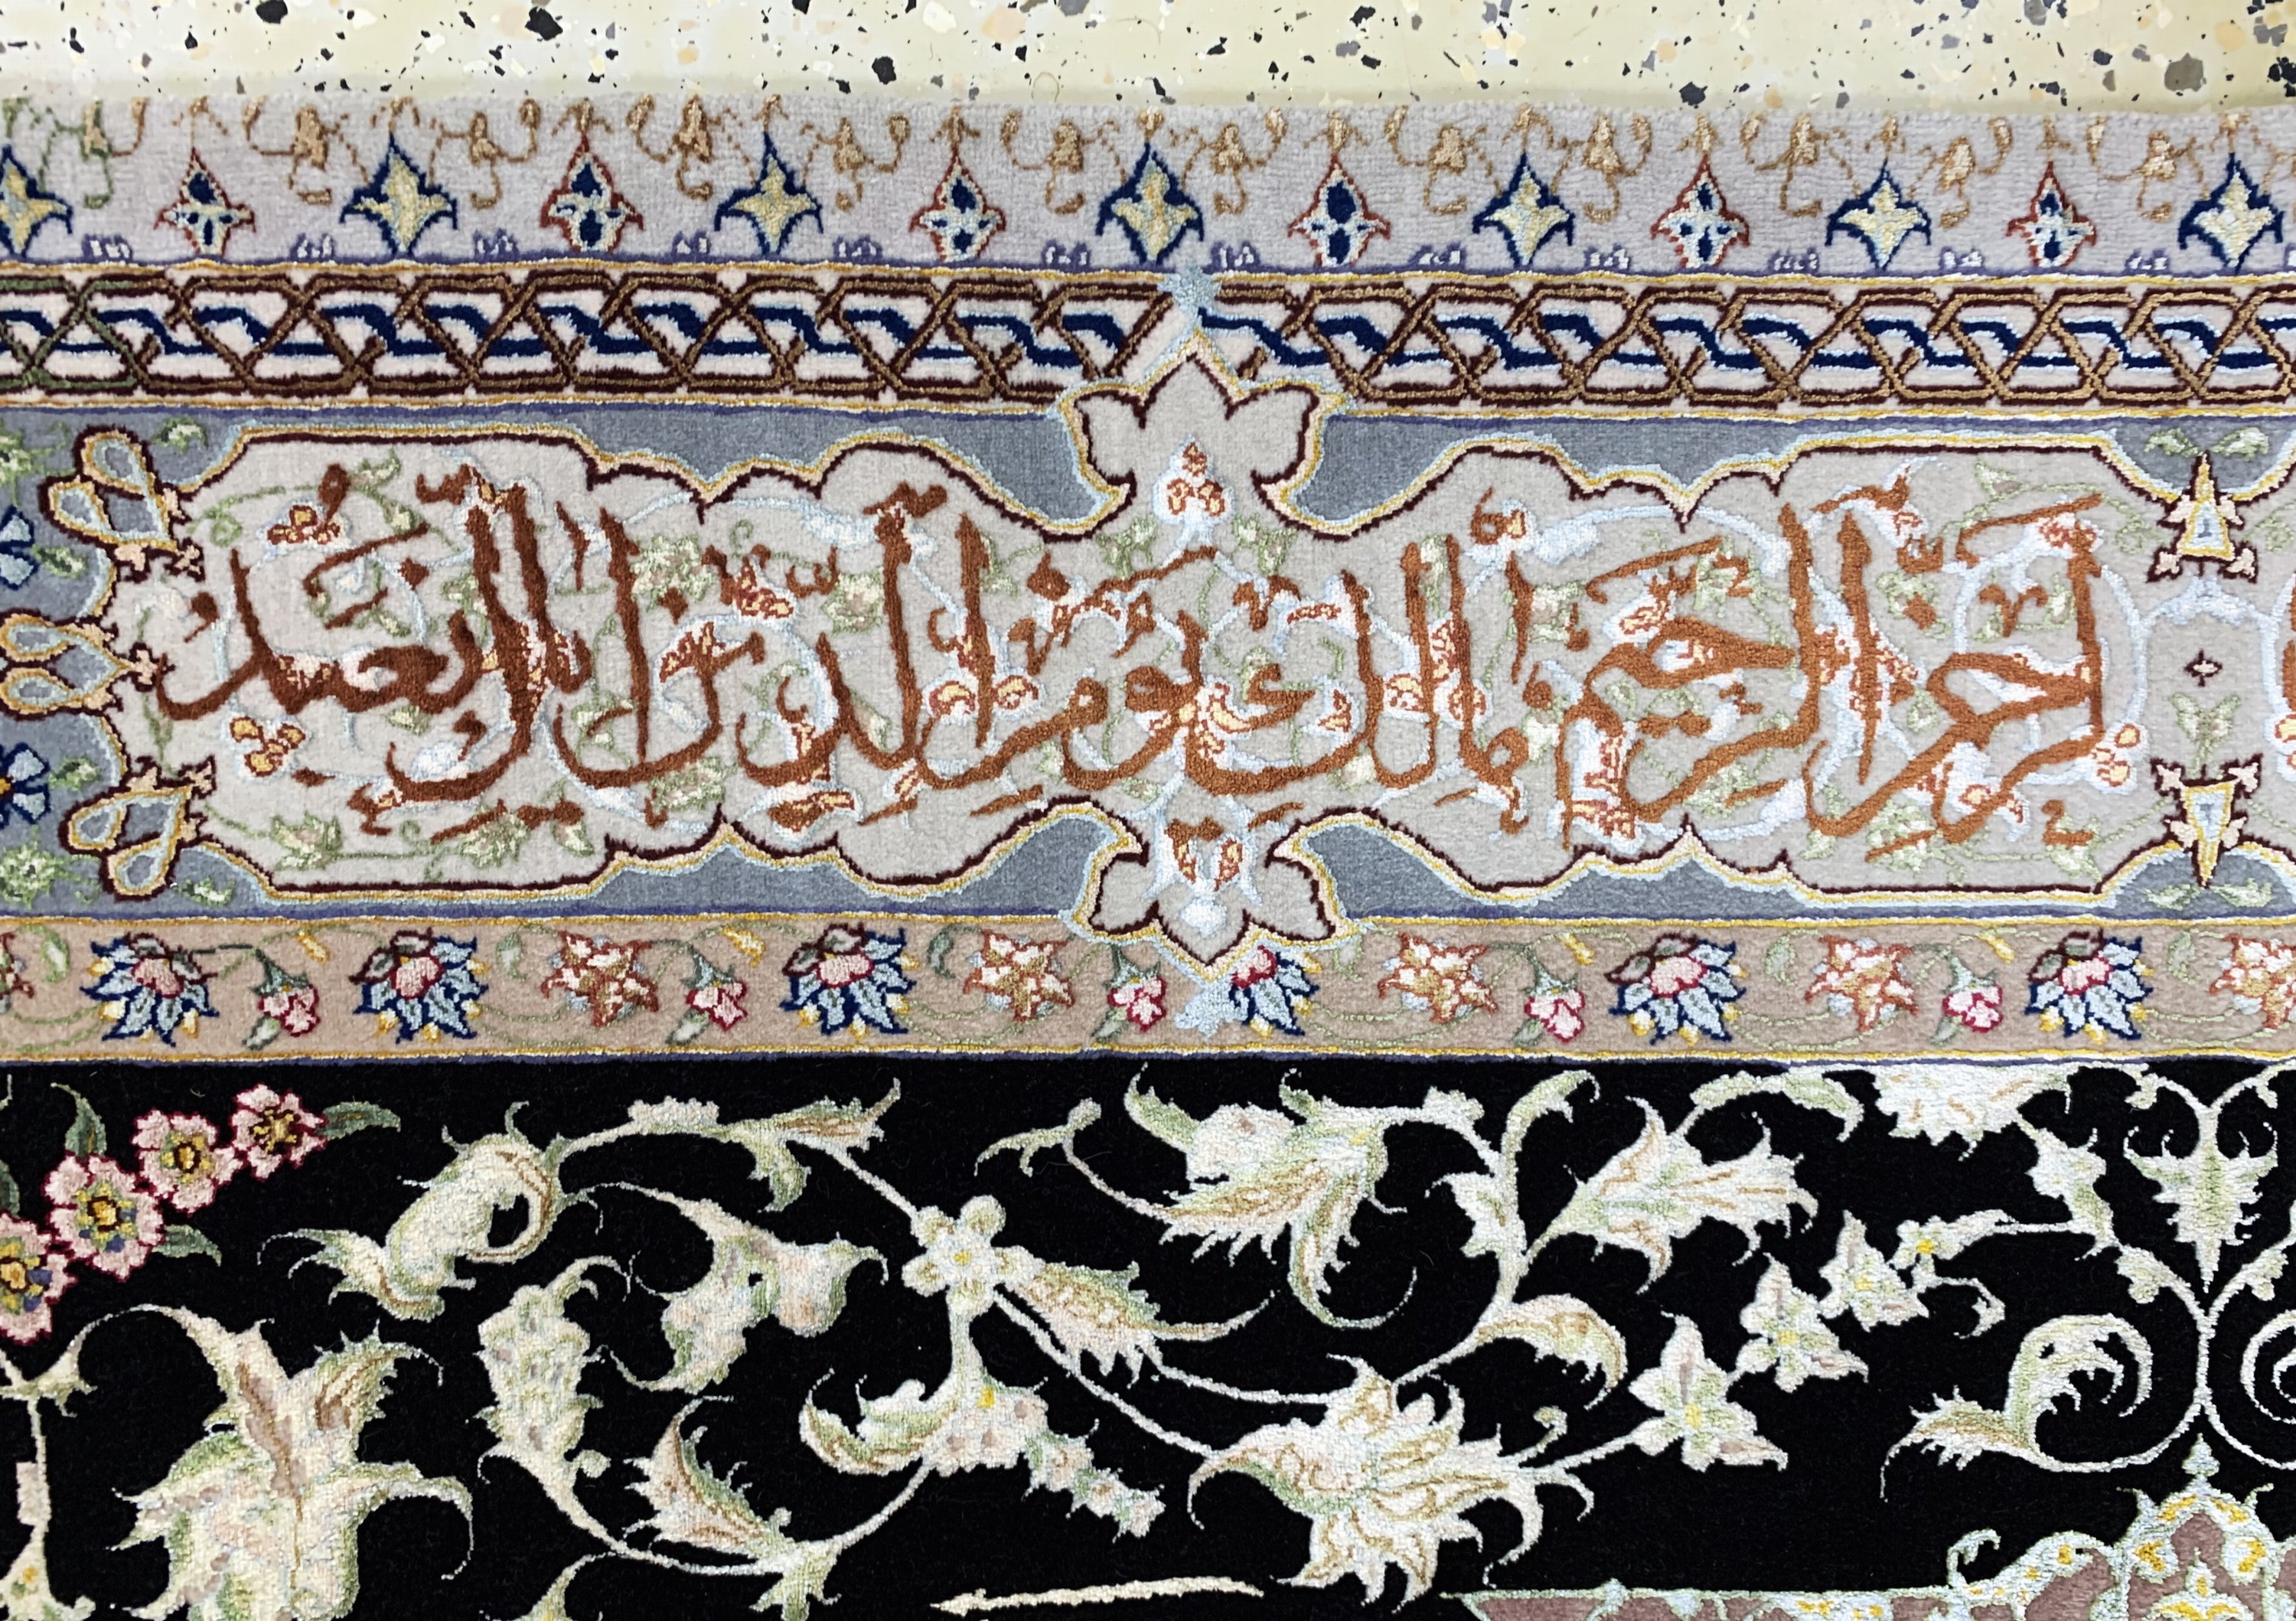 الرحمن الرحيم مالك يوم الدين اياك نعبد